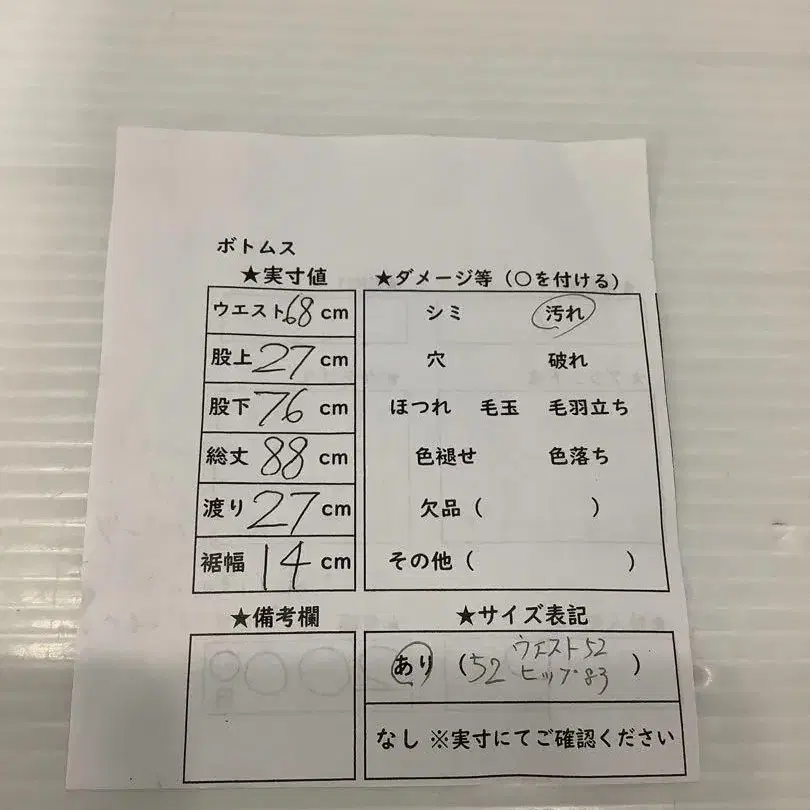 ボトムス
★実寸値
ウエスト68cm
股上27cm
股下76cm
総丈88cm
渡り27cm
裾幅14cm
★ダメージ等（〇を付ける）
シミ 汚れ
穴 破れ
ほつれ 毛玉 毛羽立ち
色褪せ 色落ち
欠品（ ）
その他（ ）
★備考欄
★サイズ表記
あり（52 ウエスト52 ヒップ83）
なし ※実寸にてご確認ください